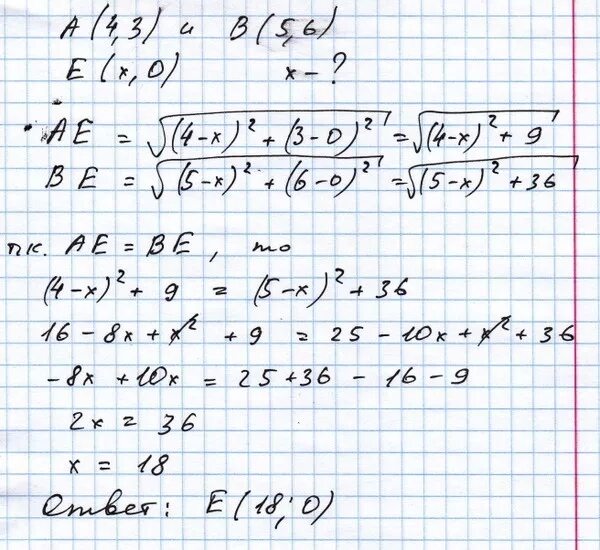 A(4,3) и B(5,6)
E(x,0) x-?
AE = √(4-x)² + (3-0)² = √(4-x)² + 9
BE = √(5-x)² + (6-0)² = √(5-x)² + 36
т.к. AE = BE, то
(4-x)² + 9 = (5-x)² + 36
16 - 8x + x² + 9 = 25 - 10x + x² + 36
-8x + 10x = 25 + 36 - 16 - 9
2x = 36
x = 18
Ответ: E(18;0)